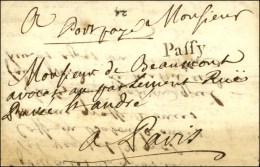 24
A Port paye a Monsieur
Passy
Monsieur de Beaumont
avocat au parlement Rue
St andré
a Paris